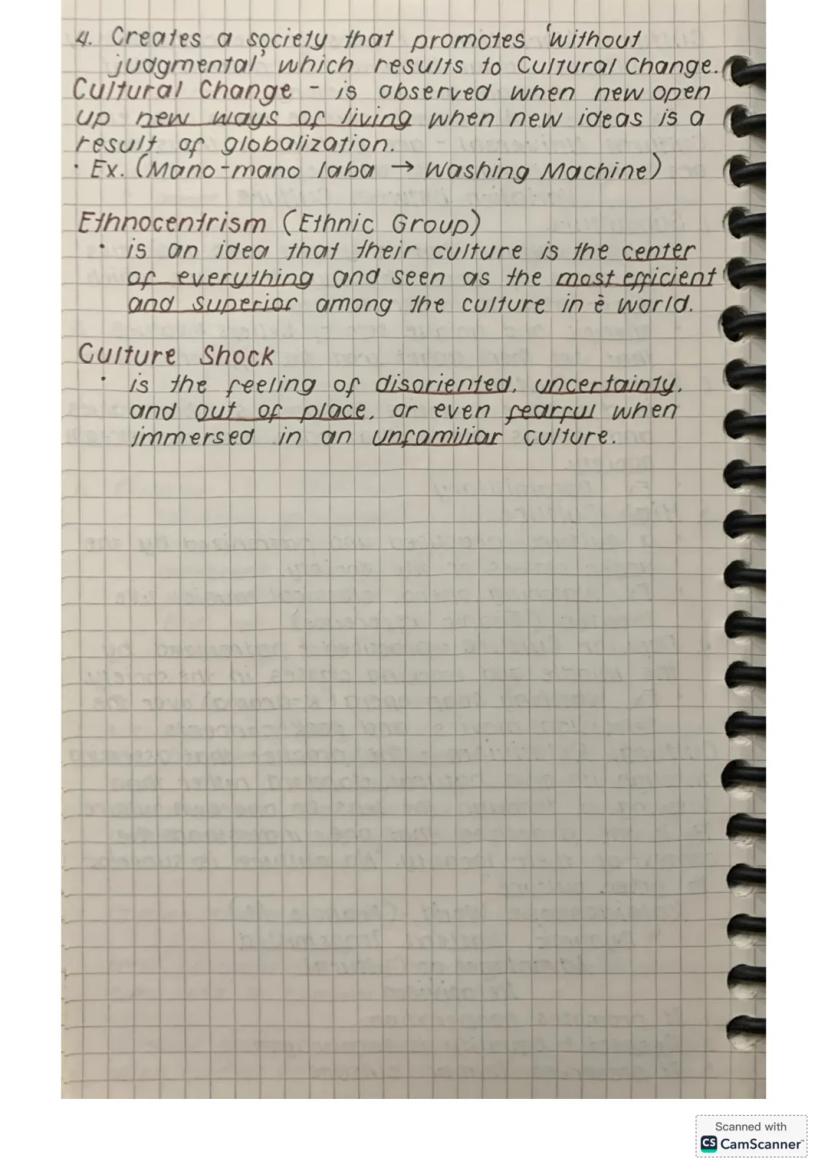 4. Creates a society that promotes 'without
judgmental' which results to Cultural Change.
Cultural Change - is observed when new open
up new ways of living when new ideas is a
result of globalization.
• Ex. (Mano-mano laba → Washing Machine)
Ethnocentrism (Ethnic Group)
• is an idea that their culture is the center
of everything and seen as the most efficient
and superior among the culture in ė world.
Culture Shock
• is the feeling of disoriented, uncertainty,
and out of place, or even fearful when
immersed in an unfamiliar culture.
Scanned with
CS CamScanner